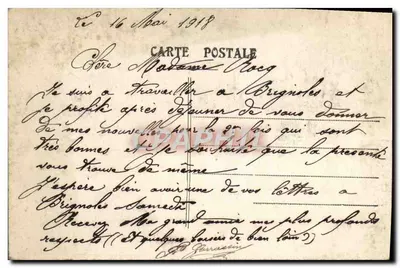 Le 16 Mai 1918
CARTE POSTALE
Chère Madame Rocq
Je suis a Travailler a Brignoles et
je profite après déjeuner de vous donner
de mes nouvelle pour la fois qui sont
très bonnes Je souhaite que la présente
vous trouve de même
J'espère bien avoir une de vos lettres a
Brignoles Samedi
Recevez Ma grand amie mes plus profonds
respects ((Et quelques baisers de bien loin))